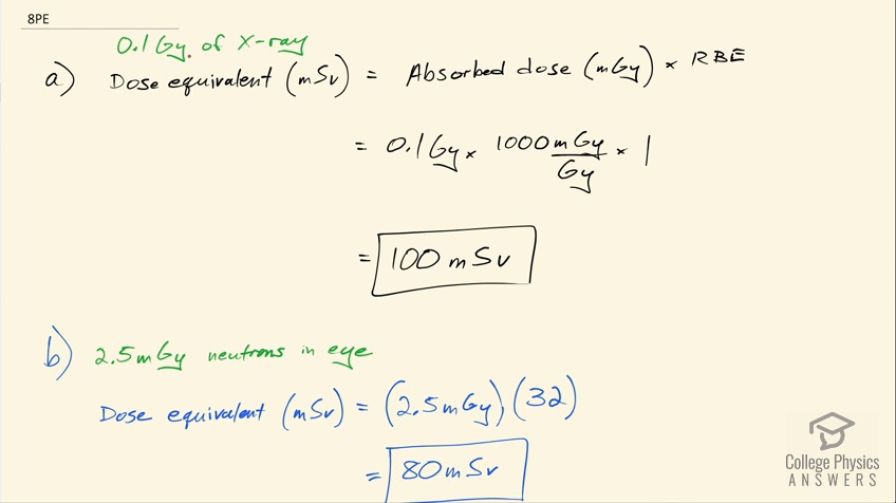 8PE
0.1 Gy. of X-ray
a) Dose equivalent (mSv) = Absorbed dose (mGy) × RBE
= 0.1 Gy × 1000 mGy/Gy × 1
= 100 mSv
b) 2.5 mGy neutrons in eye
Dose equivalent (mSv) = (2.5 mGy) (32)
= 80 mSv
College Physics
ANSWERS